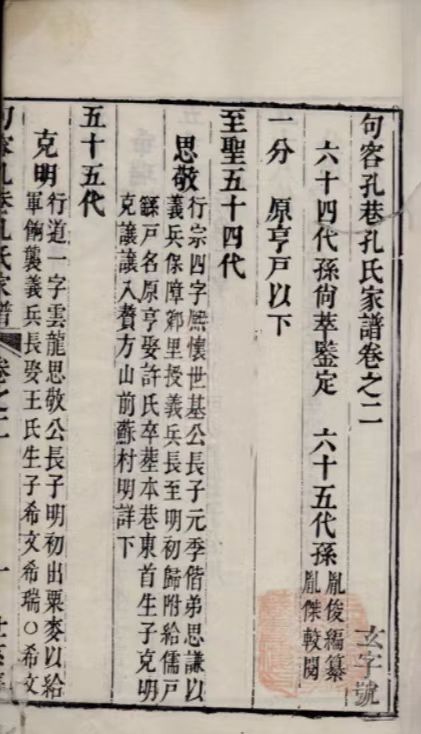 句容孔巷孔氏家譜卷之二
玄字號
六十四代孫尙萃鑒定 六十五代孫
胤俊編纂
胤傑較閱
一分 原亨戶以下
至聖五十四代
思敬
行宗四字熈懷世基公長子元季偕弟思謙以
義兵保障鄉里授義兵長至明初歸附給儒戶
繇戶名原亨娶許氏卒塟本巷東首生子克明
克讓讓入贅方山前蘇村明詳下
五十五代
克明
行道一字雲龍思敬公長子明初出粟麥以給
軍餉襲義兵長娶王氏生子希文希瑞○希文
句容孔巷孔氏家譜
卷之二